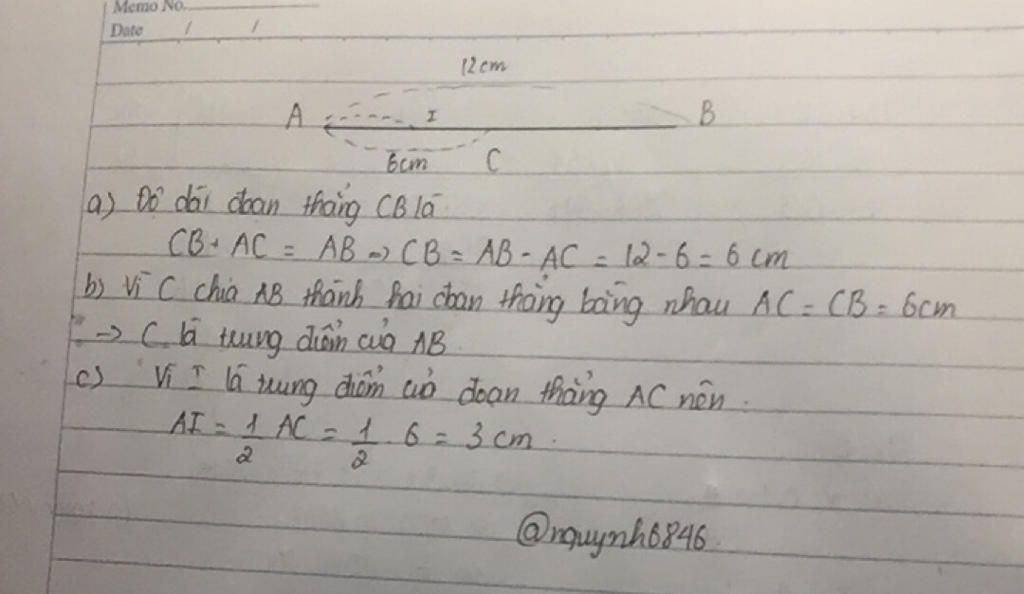 Memo No.
Date / /
12cm
A I B
6cm C
a) Độ dài đoạn thẳng CB là
CB + AC = AB => CB = AB - AC = 12 - 6 = 6 cm
b) Vì C chia AB thành hai đoạn thẳng bằng nhau AC = CB = 6cm
-> C là trung điểm của AB
c) Vì I là trung điểm của đoạn thẳng AC nên
AI = 1/2 AC = 1/2 . 6 = 3 cm .
@nquynh6846